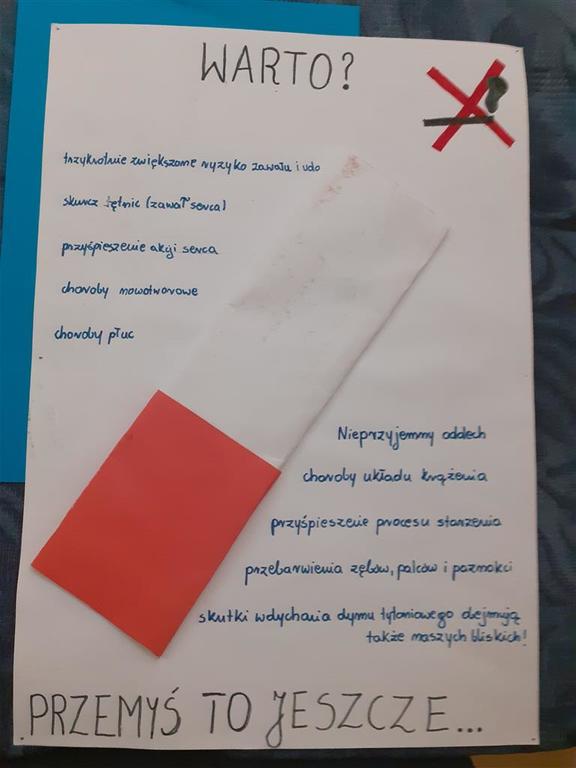 WARTO?
trzykrotnie zwiększone ryzyko zawału i udo
skurcz tętnic (zawał serca)
przyśpieszenie akcji serca
choroby nowotworowe
choroby płuc
Nieprzyjemny oddech
choroby układu krążenia
przyśpieszenie procesu starzenia
przebarwienia zębów, palców i paznokci
skutki wdychania dymu tytoniowego obejmują
także naszych bliskich!
PRZEMYŚ TO JESZCZE...